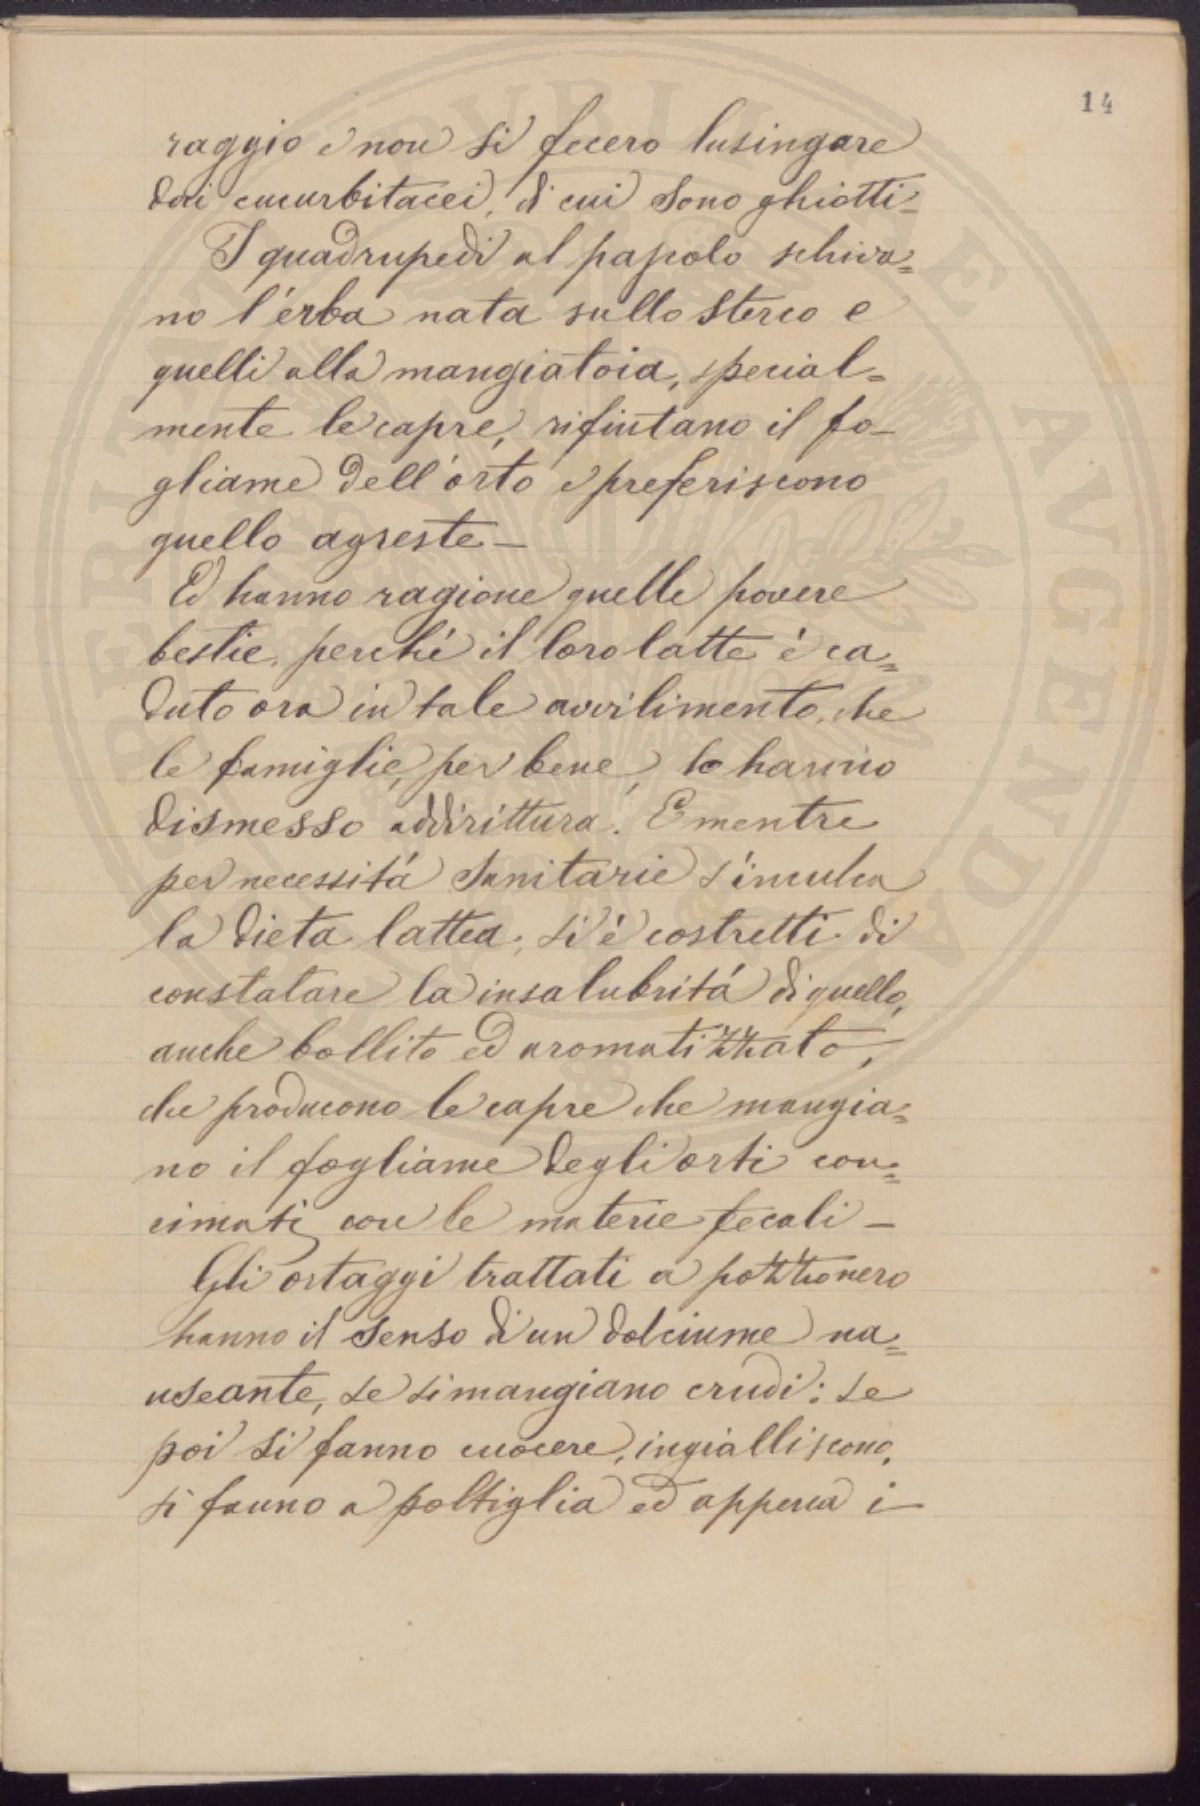 14
raggio e non si fecero lusingare
dai cucurbitacei, di cui sono ghiotti_
I quadrupedi al papolo schiva=
no l'erba nata sullo sterco e
quelli alla mangiatoia, special=
mente le capre, rifiutano il fo_
gliame dell'orto e preferiscono
quello agreste_
Ed hanno ragione quelle povere
bestie, perché il loro latte é ca=
duto ora in tale avvilimento, che
le famiglie, per bene, lo hanno
dismesso addirittura. E mentre
per necessitá sanitarie s'inculca
la dieta lattea, si é costretti di
constatare la insalubritá di quello,
anche bollito ed aromatizzato,
che producono le capre che mangia=
no il fogliame degli orti con=
cimati con le materie fecali_
Gli ortaggi trattati a pozzonero
hanno il senso di un dolciume na=
useante, se si mangiano crudi: se
poi si fanno cuocere, ingialliscono,
si fanno a poltiglia ed appena i_